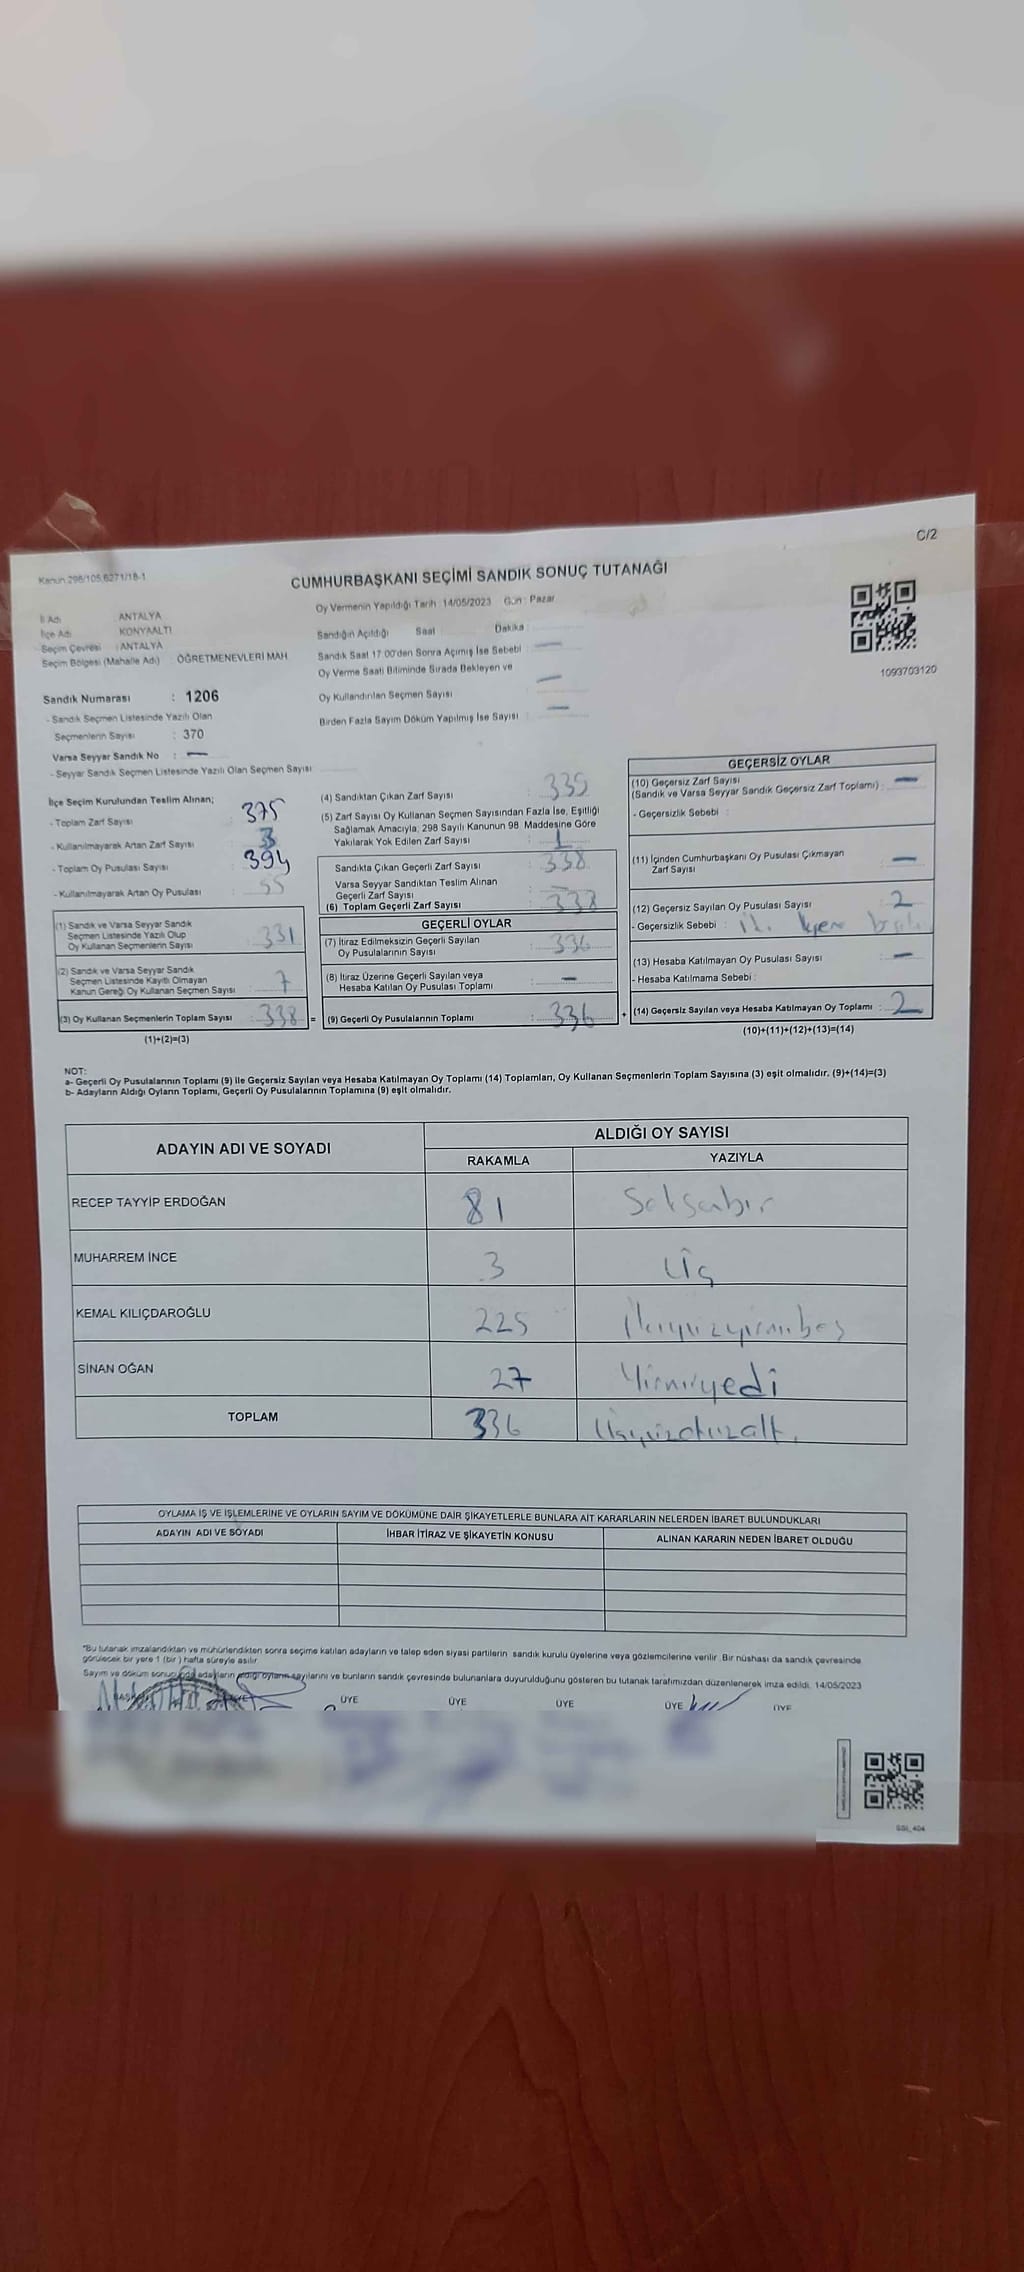 C/2
Kanun:298/105,6271/18-1
CUMHURBAŞKANI SEÇİMİ SANDIK SONUÇ TUTANAĞI
Oy Vermenin Yapıldığı Tarih : 14/05/2023 Gün : Pazar
İl Adı ANTALYA
İlçe Adı KONYAALTI
Seçim Çevresi : ANTALYA
Seçim Bölgesi (Mahalle Adı) : ÖĞRETMENEVLERİ MAH
Sandığın Açıldığı Saat : Dakika :
Sandık Saat 17:00'den Sonra Açımış İse Sebebi : —
Oy Verme Saati Bitiminde Sırada Bekleyen ve
Oy Kullandırılan Seçmen Sayısı : —
Birden Fazla Sayım Döküm Yapılmış İse Sayısı : —
1093703120
Sandık Numarası : 1206
- Sandık Seçmen Listesinde Yazılı Olan
Seçmenlerin Sayısı : 370
Varsa Seyyar Sandık No : —
- Seyyar Sandık Seçmen Listesinde Yazılı Olan Seçmen Sayısı
İlçe Seçim Kurulundan Teslim Alınan;
- Toplam Zarf Sayısı 375
- Kullanılmayarak Artan Zarf Sayısı
- Toplam Oy Pusulası Sayısı 394
- Kullanılmayarak Artan Oy Pusulası 55
(1) Sandık ve Varsa Seyyar Sandık
Seçmen Listesinde Yazılı Olup
Oy Kullanan Seçmenlerin Sayısı : 331
(2) Sandık ve Varsa Seyyar Sandık
Seçmen Listesinde Kayıtlı Olmayan
Kanun Gereği Oy Kullanan Seçmen Sayısı : 7
(3) Oy Kullanan Seçmenlerin Toplam Sayısı : 338 =
(1)+(2)=(3)
(4) Sandıktan Çıkan Zarf Sayısı : 339
(5) Zarf Sayısı Oy Kullanan Seçmen Sayısından Fazla İse, Eşitliği
Sağlamak Amacıyla, 298 Sayılı Kanunun 98. Maddesine Göre
Yakılarak Yok Edilen Zarf Sayısı : 1
Sandıkta Çıkan Geçerli Zarf Sayısı : 338
Varsa Seyyar Sandıktan Teslim Alınan
Geçerli Zarf Sayısı : —
(6) Toplam Geçerli Zarf Sayısı : 338
GEÇERLİ OYLAR
(7) İtiraz Edilmeksizin Geçerli Sayılan
Oy Pusulalarının Sayısı : 336
(8) İtiraz Üzerine Geçerli Sayılan veya
Hesaba Katılan Oy Pusulası Toplamı : —
(9) Geçerli Oy Pusulalarının Toplamı : 336 +
GEÇERSİZ OYLAR
(10) Geçersiz Zarf Sayısı
(Sandık ve Varsa Seyyar Sandık Geçersiz Zarf Toplamı) : —
- Geçersizlik Sebebi :
(11) İçinden Cumhurbaşkanı Oy Pusulası Çıkmayan
Zarf Sayısı : —
(12) Geçersiz Sayılan Oy Pusulası Sayısı : 2
- Geçersizlik Sebebi :
(13) Hesaba Katılmayan Oy Pusulası Sayısı : —
- Hesaba Katılmama Sebebi :
(14) Geçersiz Sayılan veya Hesaba Katılmayan Oy Toplamı : 2
(10)+(11)+(12)+(13)=(14)
NOT:
a- Geçerli Oy Pusulalarının Toplamı (9) ile Geçersiz Sayılan veya Hesaba Katılmayan Oy Toplamı (14) Toplamları, Oy Kullanan Seçmenlerin Toplam Sayısına (3) eşit olmalıdır. (9)+(14)=(3)
b- Adayların Aldığı Oyların Toplamı, Geçerli Oy Pusulalarının Toplamına (9) eşit olmalıdır.
ADAYIN ADI VE SOYADI ALDIĞI OY SAYISI
RAKAMLA YAZIYLA
RECEP TAYYİP ERDOĞAN 81 Seksenbir
MUHARREM İNCE 3 Üç
KEMAL KILIÇDAROĞLU 225 İkiyüzyirmibeş
SİNAN OĞAN 27 Yirmiyedi
TOPLAM 336 Üçyüzotuzaltı
OYLAMA İŞ VE İŞLEMLERİNE VE OYLARIN SAYIM VE DÖKÜMÜNE DAİR ŞİKAYETLERLE BUNLARA AİT KARARLARIN NELERDEN İBARET BULUNDUKLARI
ADAYIN ADI VE SOYADI İHBAR İTİRAZ VE ŞİKAYETİN KONUSU ALINAN KARARIN NEDEN İBARET OLDUĞU
*Bu tutanak imzalandıktan ve mühürlendikten sonra seçime katılan adayların ve talep eden siyasi partilerin sandık kurulu üyelerine veya gözlemcilerine verilir. Bir nüshası da sandık çevresinde
görülecek bir yere 1 (bir) hafta süreyle asılır.
Sayım ve döküm sonucunda adayların aldığı oyların sayılarını ve bunların sandık çevresinde bulunanlara duyurulduğunu gösteren bu tutanak tarafımızdan düzenlenerek imza edildi. 14/05/2023
ÜYE ÜYE ÜYE ÜYE ÜYE